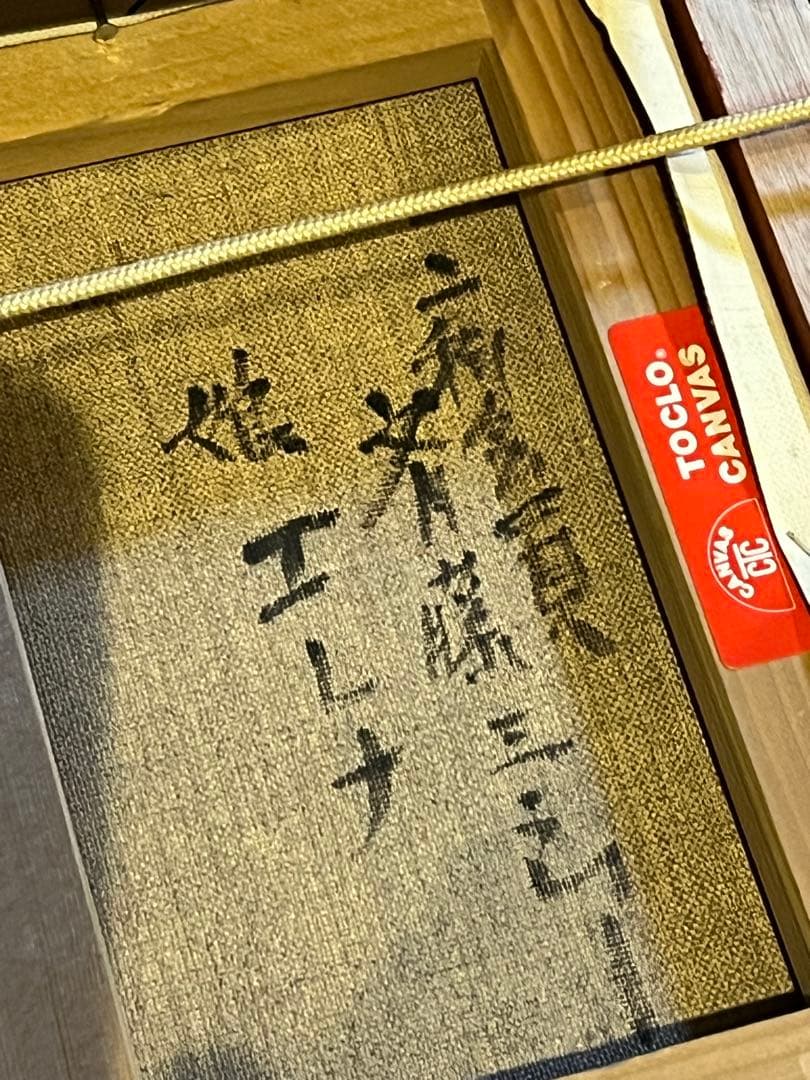 新会員
斉藤三郎
娘 エレナ
TOCLO®
CANVAS
CANVAS
CIC